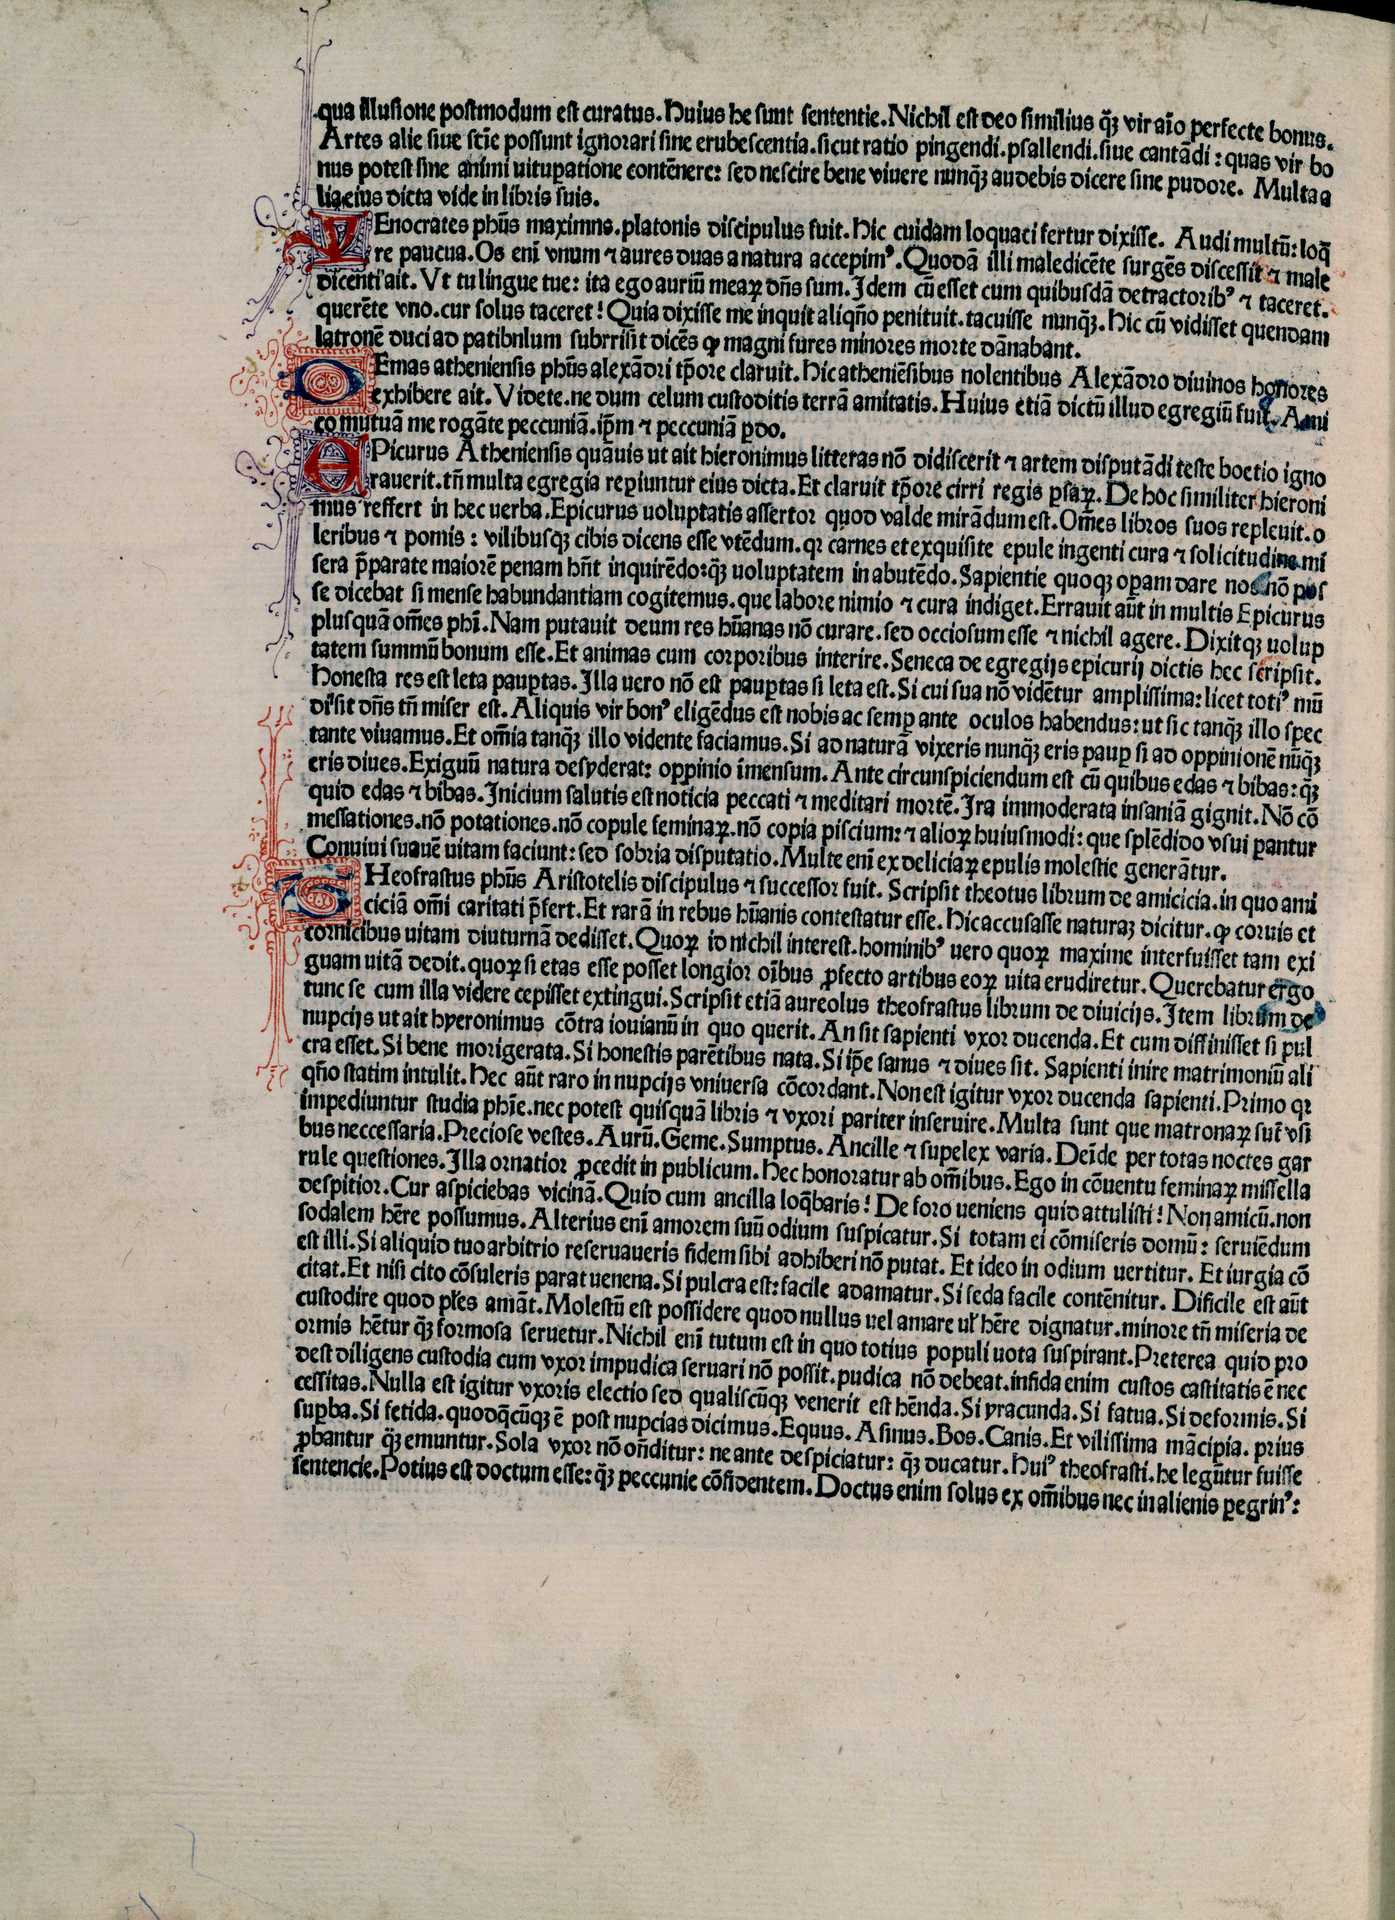 qua illusione postmodum est curatus. Huius he sunt sententie. Nichil est deo similius qȝ vir aīo perfecte bonus.
Artes alie siue scīe possunt ignorari sine erubescentia. sicut ratio pingendi. psallendi. siue cantādi: quas vir bo
nus potest sine animi uitupatione contēnere: sed nescire bene viuere nunqȝ audebis dicere sine pudore. Multa a
lia eius dicta vide in libris suis.
XEnocrates phūs maximns. platonis discipulus fuit. Hic cuidam loquaci fertur dixisse. Audi multū: loq̄
re paucua. Os enī vnum ⁊ aures duas a natura accepimꝰ. Quodā illi maledicēte surgēs discessit ⁊ male
dicenti ait. Vt tu lingue tue: ita ego auriū meaꝝ dn̄s sum. Idem cū esset cum quibusdā detractoribꝰ ⁊ taceret.
querēte vno. cur solus taceret! Quia dixisse me inquit aliqn̄o penituit. tacuisse nunqȝ. Hic cū vidisset quendam
latronē duci ad patibnlum subrrisit dicēs ꝙ magni fures minores morte dānabant.
DEmas atheniensis phūs alexādri tp̄ore claruit. Hic atheniēsibus nolentibus Alexādro diuinos honores
exhibere ait. Videte. ne dum celum custoditis terrā amitatis. Huius etiā dictū illud egregiū fuit. Ami
co mutuā me rogāte peccuniā. ip̄m ⁊ peccuniā ꝑdo.
EPicurus Atheniensis quāuis ut ait hieronimus litteras nō didiscerit ⁊ artem disputādi teste boetio igno
rauerit. tn̄ multa egregia reꝑiuntur eius dicta. Et claruit tp̄ore cirri regis ꝑsaꝝ. De hoc similiter hieroni
mus reffert in hec uerba. Epicurus uoluptatis assertor quod valde mirādum est. Om̄es libros suos repleuit. o
leribus ⁊ pomis: vilibusqȝ cibis dicens esse vtēdum. qꝛ carnes et exquisite epule ingenti cura ⁊ solicitudine. mi
sera p̄parate maiorē penam hn̄t inquirēdo: qȝ uoluptatem in abutēdo. Sapientie quoqȝ oꝑam dare nos nō pos
se dicebat si mense habundantiam cogitemus. que labore nimio ⁊ cura indiget. Errauit aūt in multis Epicurus
plus quā om̄es phī. Nam putauit deum res hūanas nō curare. sed occiosum esse ⁊ nichil agere. Dixitqȝ uolup
tatem summū bonum esse. Et animas cum corporibus interire. Seneca de egregijs epicurij dictis hec scripsit.
Honesta res est leta pauꝑtas. Illa uero nō est pauꝑtas si leta est. Si cui sua nō vidētur amplissima: licet totiꝰ mū
di sit dn̄s tn̄ miser est. Aliquis vir bonꝰ eligēdus est nobis ac semꝑ ante oculos habendus: ut sic tanqȝ illo spec
tante viuamus. Et om̄ia tanqȝ illo vidente faciamus. Si ad naturā vixeris nunqȝ eris pauꝑ si ad oppinionē nūqȝ
eris diues. Exiguū natura desyderat: oppinio īmensum. Ante circunspiciendum est cū quibus edas ⁊ bibas: qȝ
quid edas ⁊ bibas. Inicium salutis est noticia peccati ⁊ meditari mortē. Ira immoderata insaniā gignit. Nō cō
messationes. nō potationes. nō copule feminaꝝ. nō copia piscium: ⁊ alioꝝ huiusmodi: que splēdido vsui ꝑantur
Conuiui suauē uitam faciunt: sed sobria disputatio. Multe enī ex deliciaꝝ epulis molestie generātur.
THeofrastus phūs Aristotelis discipulus ⁊ successor fuit. Scripsit theotus librum de amicicia. in quo ami
ciciā om̄i caritati p̄fert. Et rarā in rebus hūanis contestatur esse. Hic accusasse naturaȝ dicitur. ꝙ coruis et
cornicibus uitam diuturnā dedisset. Quoꝝ id nichil interest. hominibꝰ uero quoꝝ maxime interfuisset tam exi
guam uitā dedit. quoꝝ si etas esse posset longior oībus ꝓfecto artibus eoꝝ uita erudiretur. Querebatur ergo
tunc se cum illa videre cepisset extingui. Scripsit etiā aureolus theofrastus librum de diuicijs. Item librum de
nupcijs ut ait hyeronimus cōtra iouianū in quo querit. An sit sapienti vxor ducenda. Et cum diffinisset si pul
cra esset. Si bene morigerata. Si honestis parētibus nata. Si ip̄e sanus ⁊ diues sit. Sapienti inire matrimoniū ali
qn̄o statim intulit. Hec aūt raro in nupcijs vniuersa cōcordant. Non est igitur vxor ducenda sapienti. Primo qꝛ
impediuntur studia phīe. nec potest quisquā libris ⁊ vxori pariter inseruire. Multa sunt que matronaꝝ sūt vsi
bus neccessaria. Preciose vestes. Aurū. Geme. Sumptus. Ancille ⁊ supelex varia. Deīde per totas noctes gar
rule questiones. Illa ornatior ꝓcedit in publicum. Hec honoratur ab om̄ibus. Ego in cōuentu feminaꝝ missella
despitior. Cur aspiciebas vicinā. Quid cum ancilla loq̄baris! De foro ueniens quid attulisti! Non amicū. non
sodalem hēre possumus. Alterius enī amorem suū odium suspicatur. Si totam ei cōmiseris domū: seruiēdum
est illi. Si aliquid tuo arbitrio reseruaueris fidem sibi adhiberi nō putat. Et ideo in odium uertitur. Et iurgia cō
citat. Et nisi cito cōsuleris parat uenena. Si pulcra est: facile adamatur. Si feda facile contēnitur. Dificile est aūt
custodire quod pl̄es amāt. Molestū est possidere quod nullus uel amare ul̄ hēre dignatur. minore tn̄ miseria de
ormis hētur qȝ formosa seruetur. Nichil enī tutum est in quo totius populi uota suspirant. Preterea quid pro
dest diligens custodia cum vxor impudica seruari nō possit. pudica nō debeat. infida enim custos castitatis ē nec
cessitas. Nulla est igitur vxoris electio sed qualiscūqȝ venerit est hēnda. Si yracunda. Si fatua. Si deformis. Si
suꝑba. Si fetida. quodq̄cūqȝ ē post nupcias dicimus. Equus. Asinus. Bos. Canis. Et vilissima mācipia. prius
ꝓbantur qȝ emuntur. Sola vxor nō on̄ditur: ne ante despiciatur: qȝ ducatur. Huiꝰ theofrasti. he legūtur fuisse
sentencie. Potius est doctum esse: qȝ peccunie cōfidentem. Doctus enim solus ex om̄ibus nec in alienis ꝑegrinꝰ: